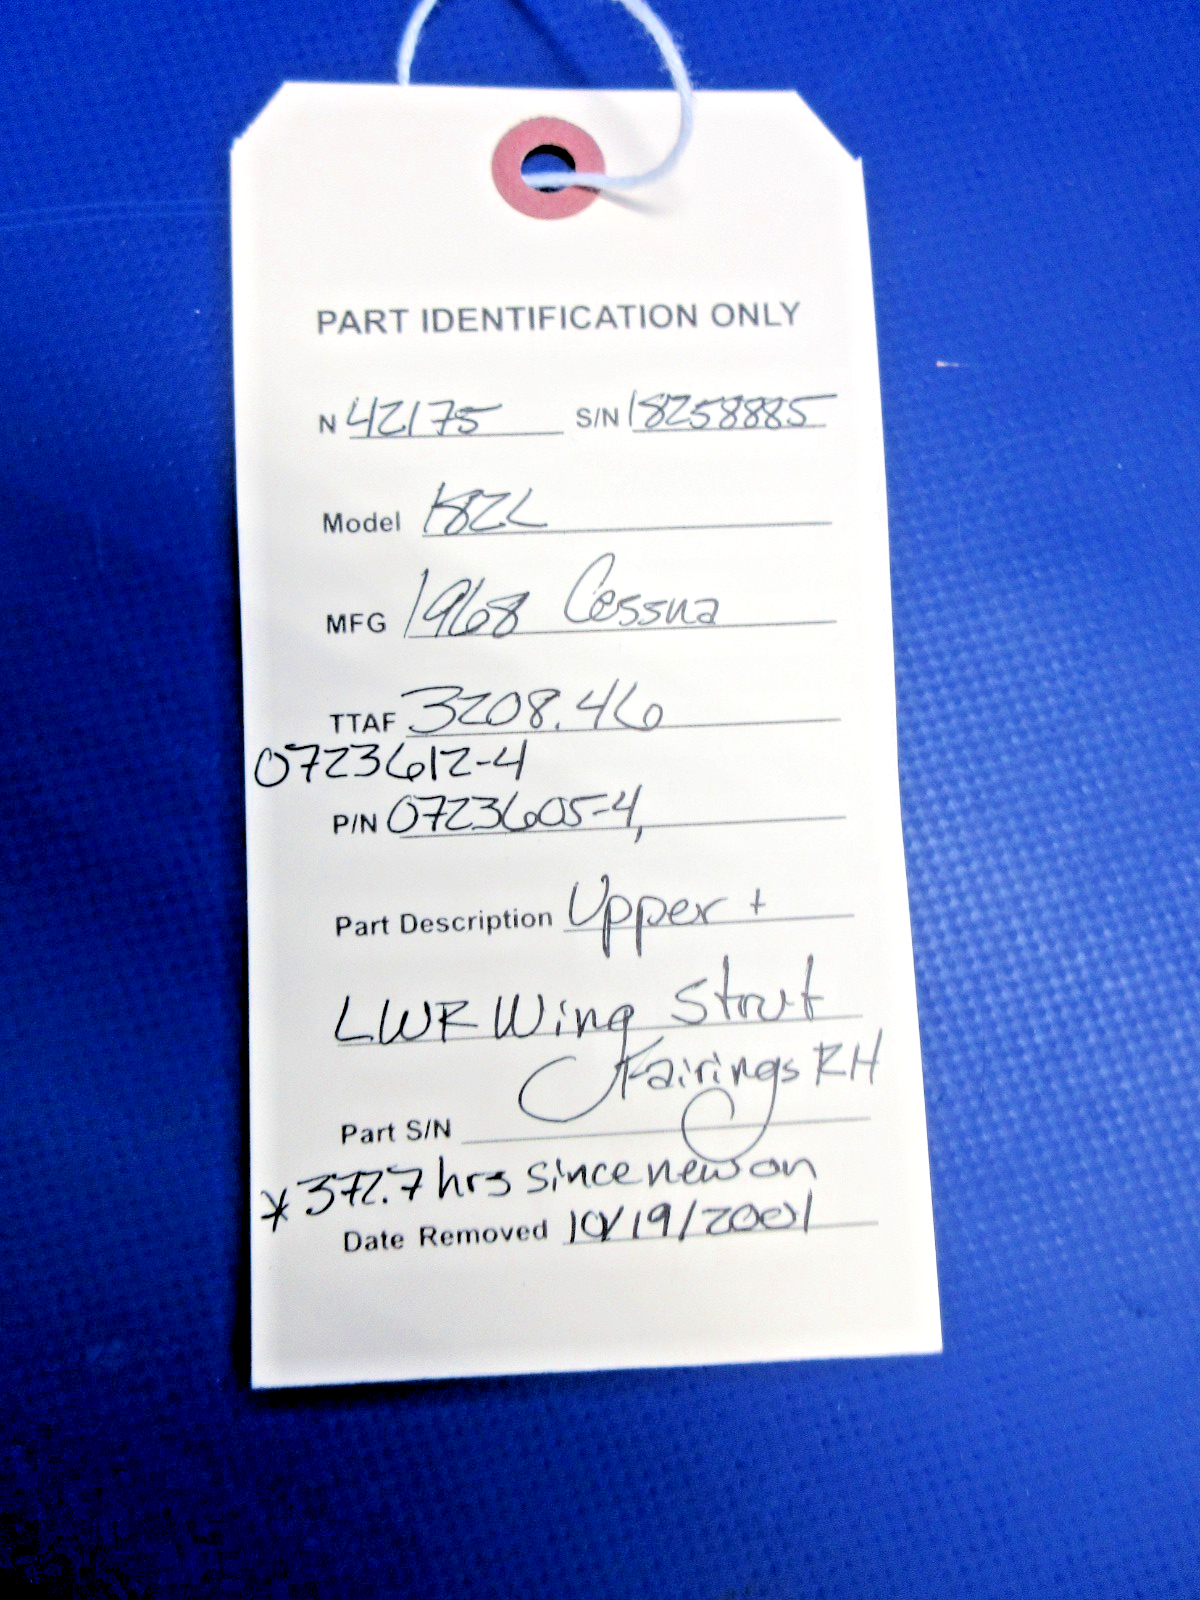 PART IDENTIFICATION ONLY
N 42175 S/N 18258885
Model 182L
MFG 1968 Cessna
TTAF 3208.46
0723612-4
P/N 0723605-4,
Part Description Upper +
LWR Wing Strut
Fairings RH
Part S/N
* 372.7 hrs since new on
Date Removed 10/19/2001